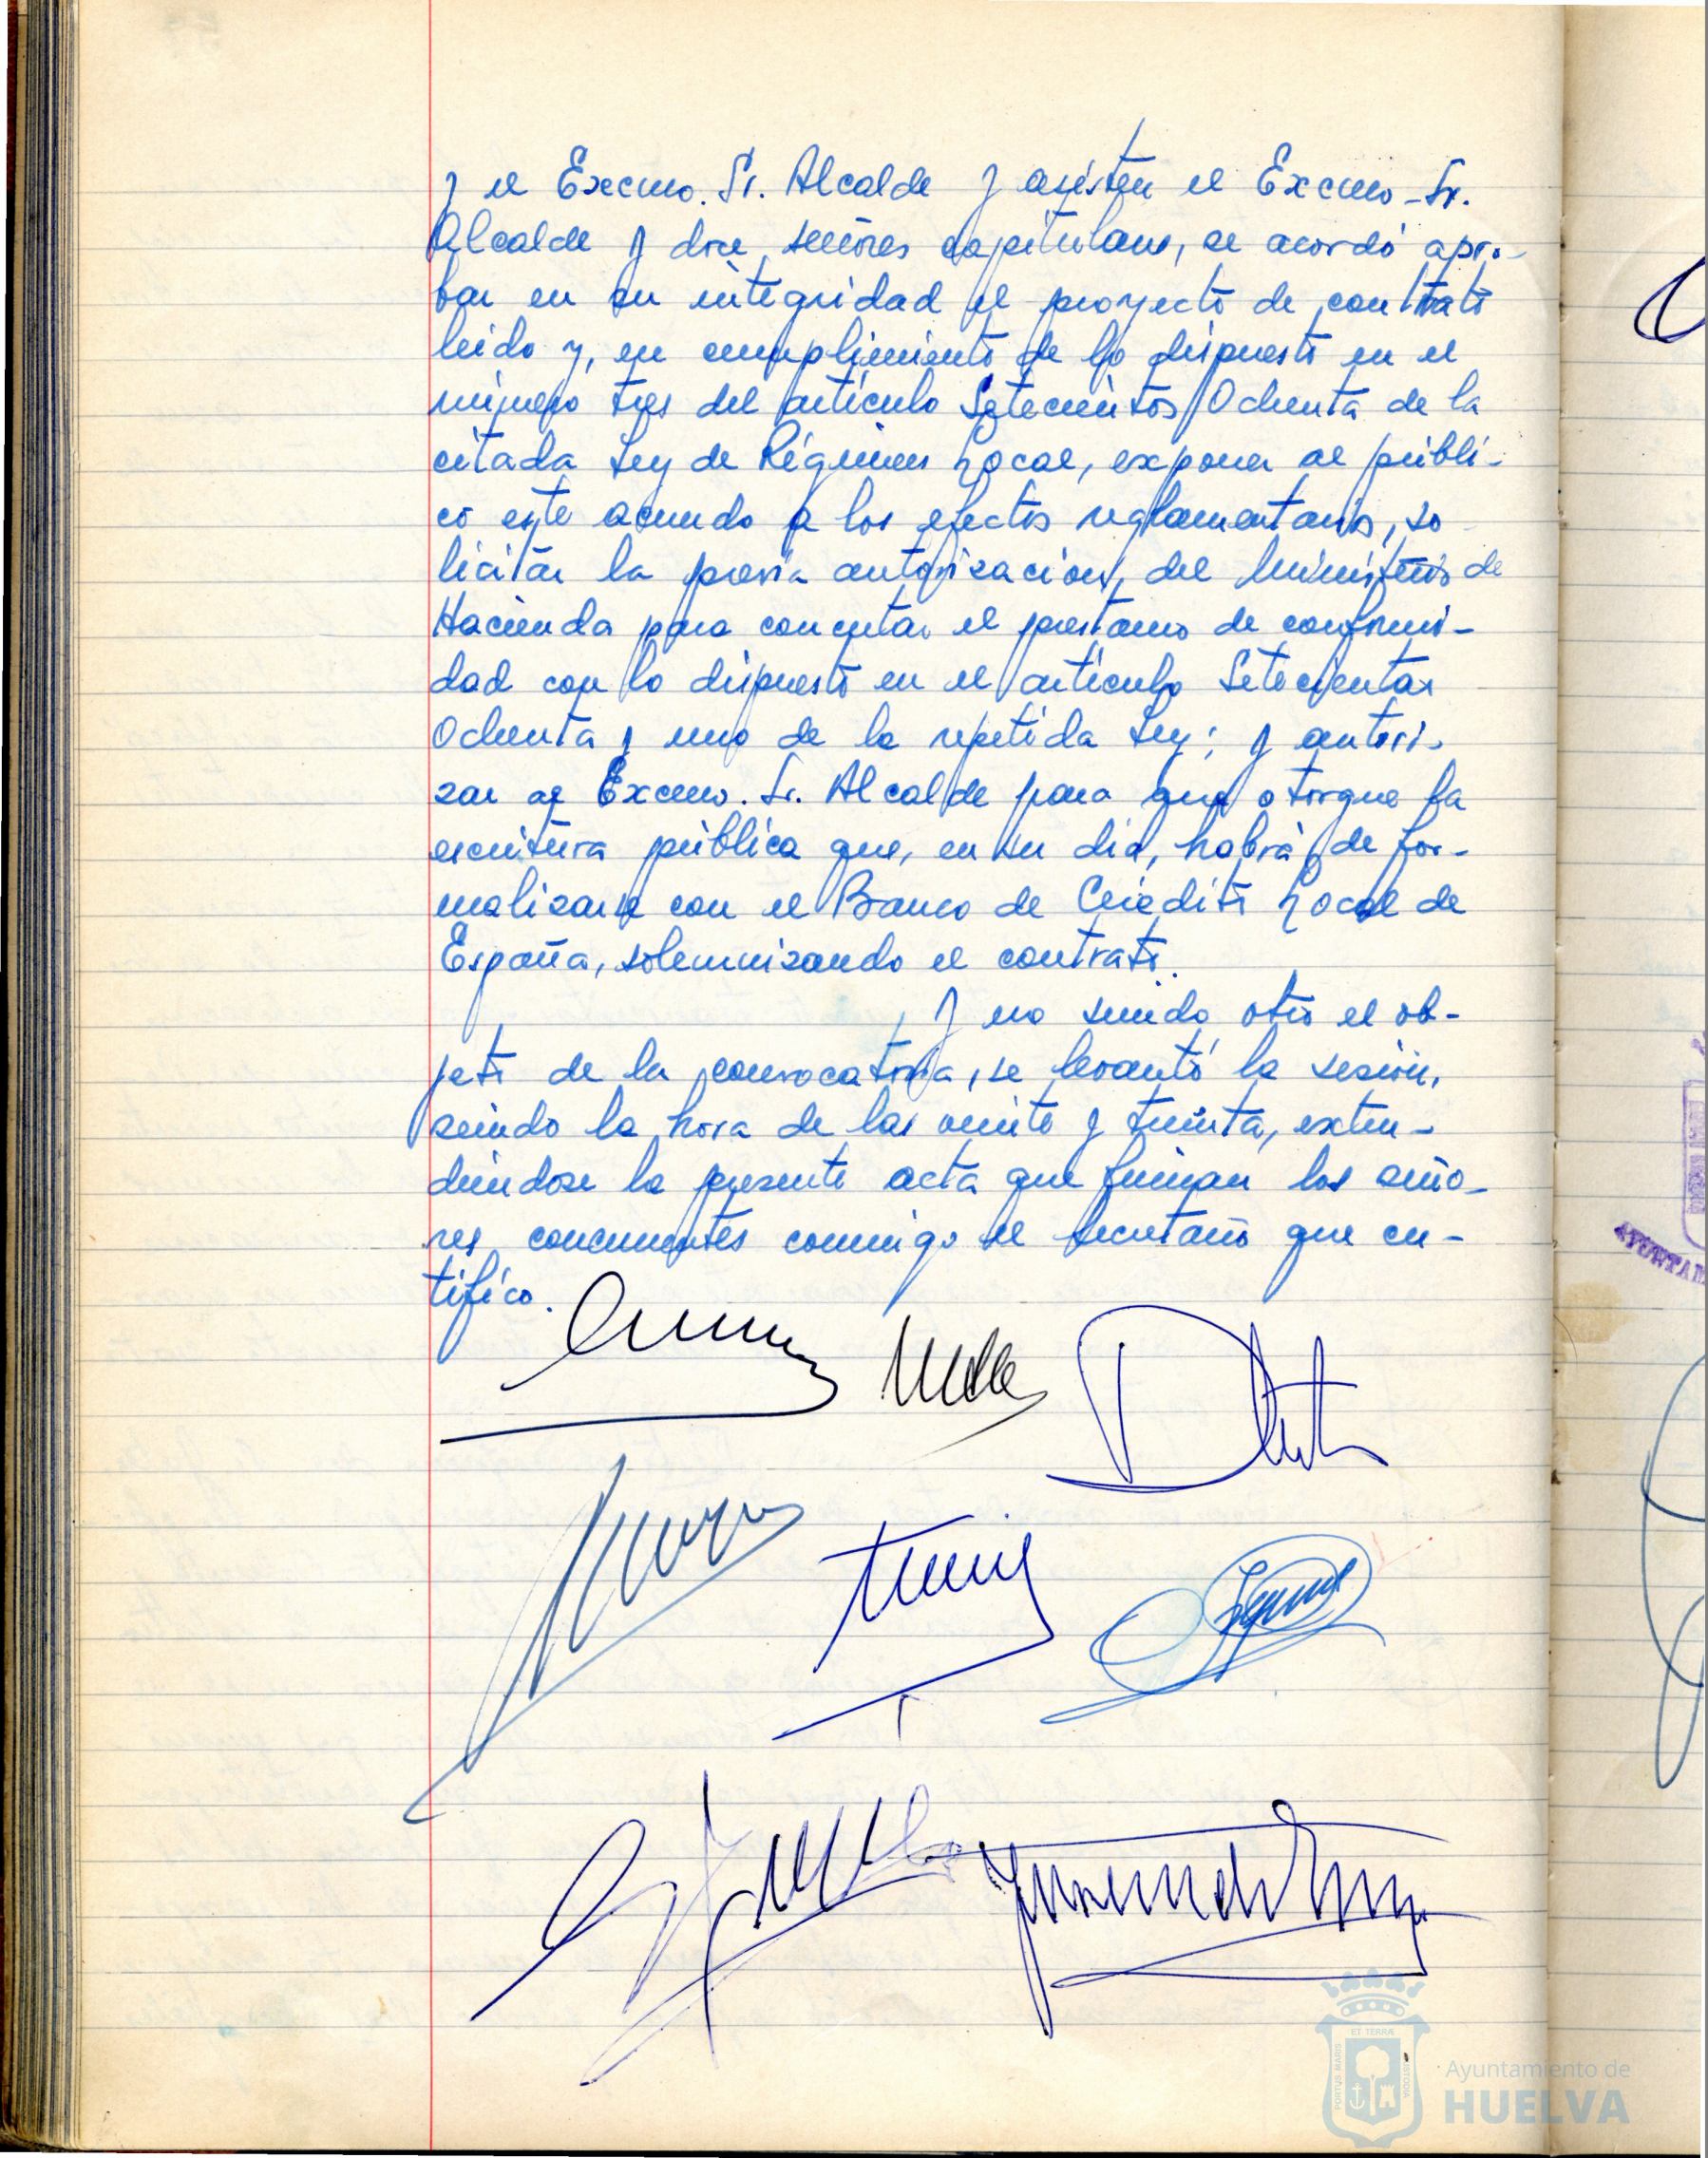 y el Excmo. Sr. Alcalde y asisten el Excmo. Sr.
Alcalde y doce señores capitulares, se acordó apro-
bar en su integridad el proyecto de contrato
leido y, en cumplimiento de lo dispuesto en el
número tres del artículo Setecientos Ochenta de la
citada Ley de Régimen Local, exponer al públi-
co este acuerdo a los efectos reglamentarios, so
licitar la previa autorización, del Ministerio de
Hacienda para concertar el prestamo de conformi-
dad con lo dispuesto en el artículo Setecientos
Ochenta y uno de la repetida Ley; y autori-
zar al Excmo. Sr. Alcalde para que otorgue la
escritura pública que, en su día, habrá de for-
malizarse con el Banco de Crédito Local de
España, solemnizando el contrato.
Y no siendo otro el ob-
jeto de la convocatoria, se levantó la sesión,
siendo la hora de las veinte y treinta, exten-
diendose la presente acta que firman los seño-
res concurrentes conmigo el Secretario que cer-
tifico.
ET TERRÆ
PORTUS MARIS
CUSTODIA
Ayuntamiento de
HUELVA